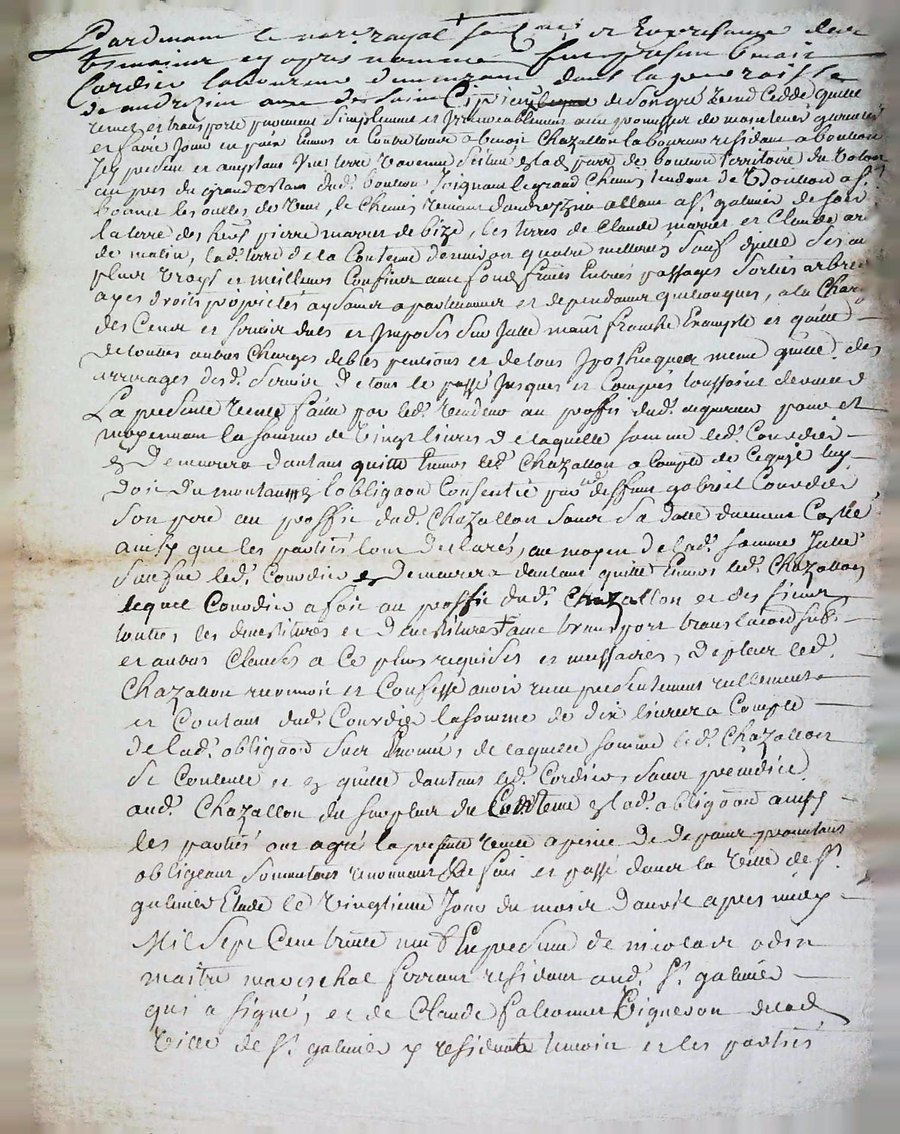 Pardevant le no.re royal soub.né et En presance des
tesmoins cy apres nommés fut presan benoit
Cordier laboureur demeurant dans la parroisse
de andrezieu de son gré vend cedde quitte
remet et transporte purement simplement et Irrevocablement avec promesse de maintenir garantir
et faire Jouir en paix Envers et Contre tous a benoit Chazallon laboureur residant a boutheon
Icy present et acceptans Une terre située parr. de boutheon territoire du
au pres du grand estan dud. boutheon Joignant le grand Chemin tendant de Boutheon a s.t
bonnet les oulles de vent, le Chemin venant dandrezieu allant a s.t galmier de soir
la terre des heri.s pierre marret de bize, les terres de Claude marret et Claude
de matin, lad. terre de la Contenue denviron quatre metterees sauf djcelle ses au
plus vrays et meilleurs Confins avec fonds fruits Entrées passages sorties arbres
ayes droits proprietés aysances apartenances et dependances quelconques, a la Charge
des Cens et servis dubs et Imposés sur Jcelle mais franche Exempte et quitte
de toutes autres Charges debtes pentions et de tous Jpotheques meme quitte des
arrerages desd. servis de tout le passé Jusques et Compris toussaint dernier
La presente vente faite par led. vendeur au proffit dud. aquereur pour et
moyennant la somme de vingt livres de laquelle somme led. Courdier
demeurera dautant quitte Envers led. Chazallon a Compte de ce quil luy
doit du montant lobliga.on Consentie par deffunt gabriel Courdier
son pere au proffit dud. Chazallon sous sa datte duement Conllée
ainsy que les parties lont declarés, au moyen de lad. somme Jcelle
led. Courdier demeurera dautant quitte Envers led. Chazallon
lequel Courdier a fait au proffit dud. Chazallon et des siens
toutes les demetitures et d'investitures avec transport translations subr.
et autres Clauses a ce plus requises et necessaires, de plus led.
Chazallon reconnoit et Confesse avoir receu presentement reellement
et Contant dud. Courdier la somme de dix livres a Compte
de lad. obliga.on sus Enoncée, de laquelle somme led. Chazallon
se Contente et quitte dautant led. Cordier, sans prejudice
aud. Chazallon du surplus du Contenu lad. obliga.on ainsy
les parties ont agréé la presente vente a peine de depans promettans
obligeans soumettans renonceans fait et passé dans la ville de s.t
galmier Etude le vingtieme Jour du mois d'avril apres midy
Mil sept Cent trente neuf En presence de nicolas odin
maitre mareschal ferrant residant aud. s.t galmier
qui a signé, et de Claude falconnet vigneron de lad.
ville de s.t galmier y residant temoin et les parties